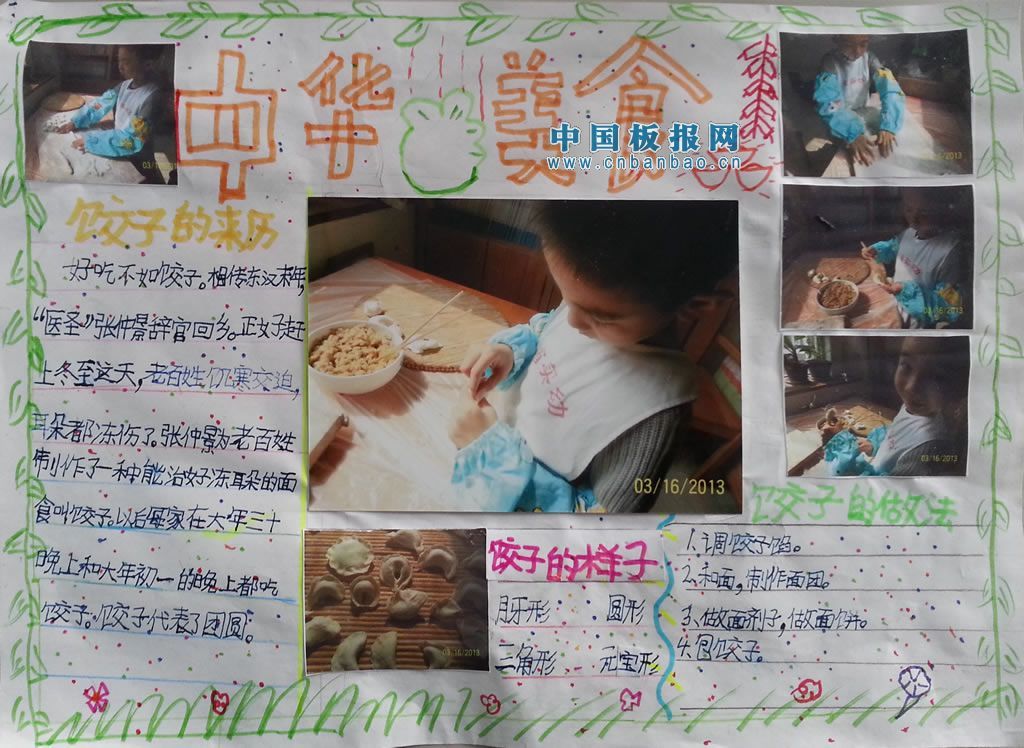 中华美食
中国板报网
www.cnbanbao.cn
饺子的来历
好吃不如饺子。相传东汉末年,
“医圣”张仲景辞官回乡。正好赶
上冬至这天,老百姓饥寒交迫,
耳朵都冻伤了。张仲景为老百姓
制作了一种能治好冻耳朵的面
食叫饺子。以后每家在大年三十
晚上和大年初一的晚上都吃
饺子。饺子代表了团圆。
实幼
03/16/2013
饺子的样子
月牙形 圆形
三角形 元宝形
饺子的做法
1、调饺子馅。
2、和面,制作面团。
3、做面剂子,做面饼。
4、包饺子。
03/16/2013
03/16/2013
03/16/2013
03/16/2013